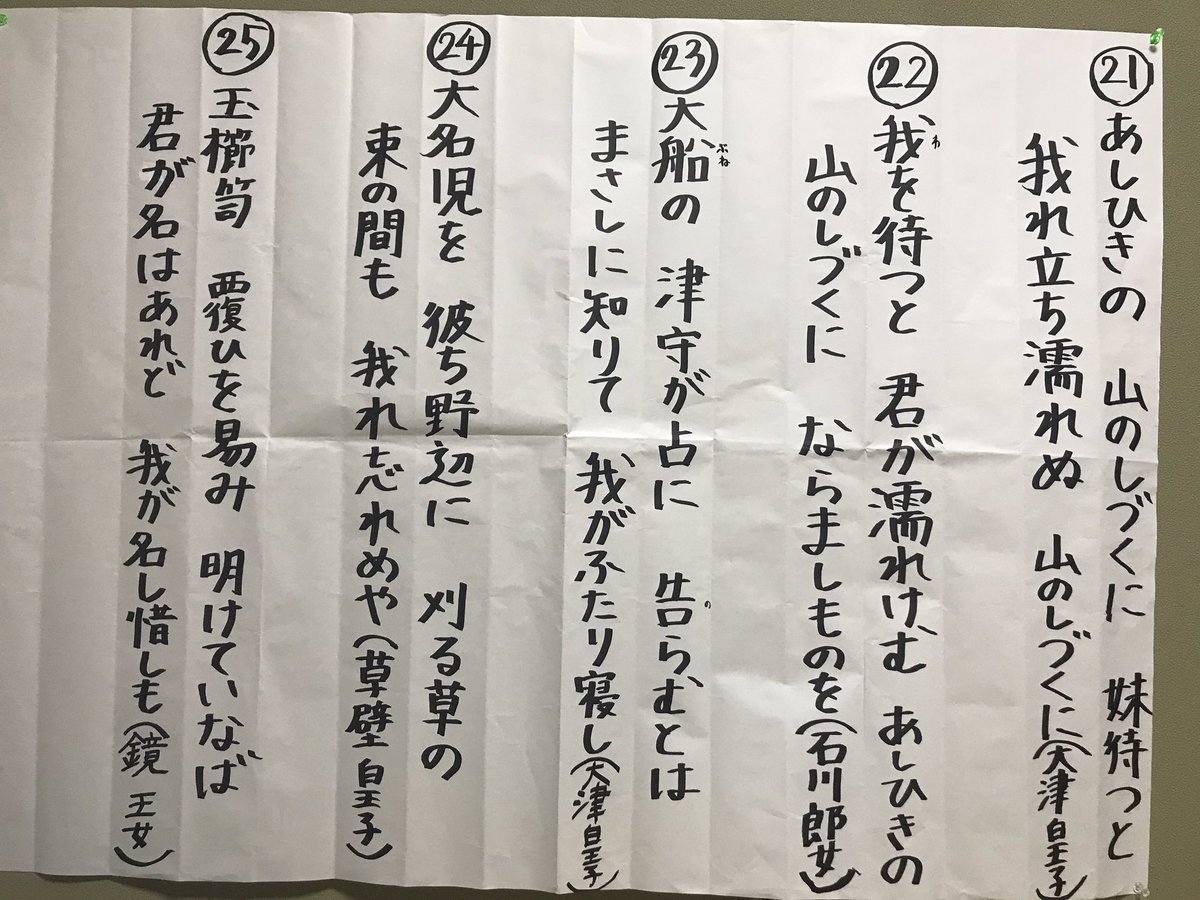 ㉑あしひきの 山のしづくに 妹待つと
我れ立ち濡れぬ 山のしづくに(大津皇子)
㉒我を待つと 君が濡れけむ あしひきの
わ
山のしづくに ならましものを(石川郎女)
㉓大船の 津守が占に 告らむとは
ぶね
の
まさしに知りて 我がふたり寝し(大津皇子)
㉔大名児を 彼ち野辺に 刈る草の
束の間も 我れ忘れめや(草壁皇子)
㉕玉櫛笥 覆ひを易み 明けていなば
君が名はあれど 我が名し惜しも(鏡王女)